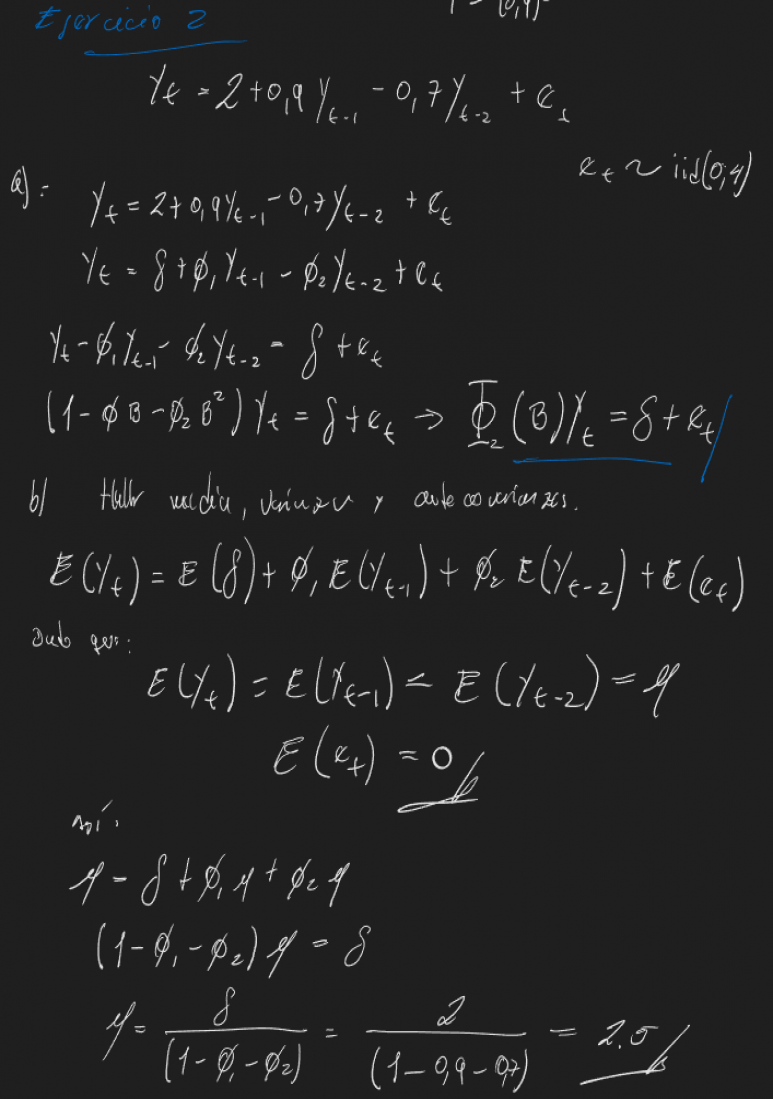 1 - (0,9)
Ejercicio 2
Yt = 2 + 0,9 Yt-1 - 0,7 Yt-2 + et
et ~ iid(0,4)
a) = Yt = 2 + 0,9 Yt-1 - 0,7 Yt-2 + et
Yt = δ + ϕ1 Yt-1 - ϕ2 Yt-2 + et
Yt - ϕ1 Yt-1 - ϕ2 Yt-2 = δ + et
(1 - ϕ B - ϕ2 B²) Yt = δ + et → Φ2 (B) Yt = δ + et
b) Hallar media, varianza y autocovarianzas.
E(Yt) = E(δ) + ϕ1 E(Yt-1) + ϕ2 E(Yt-2) + E(et)
Dado que:
E(Yt) = E(Yt-1) = E(Yt-2) = μ
E(et) = 0
así:
μ = δ + ϕ1 μ + ϕ2 μ
(1 - ϕ1 - ϕ2) μ = δ
μ = δ / (1 - ϕ1 - ϕ2) = 2 / (1 - 0,9 - 0,7) = 2.5